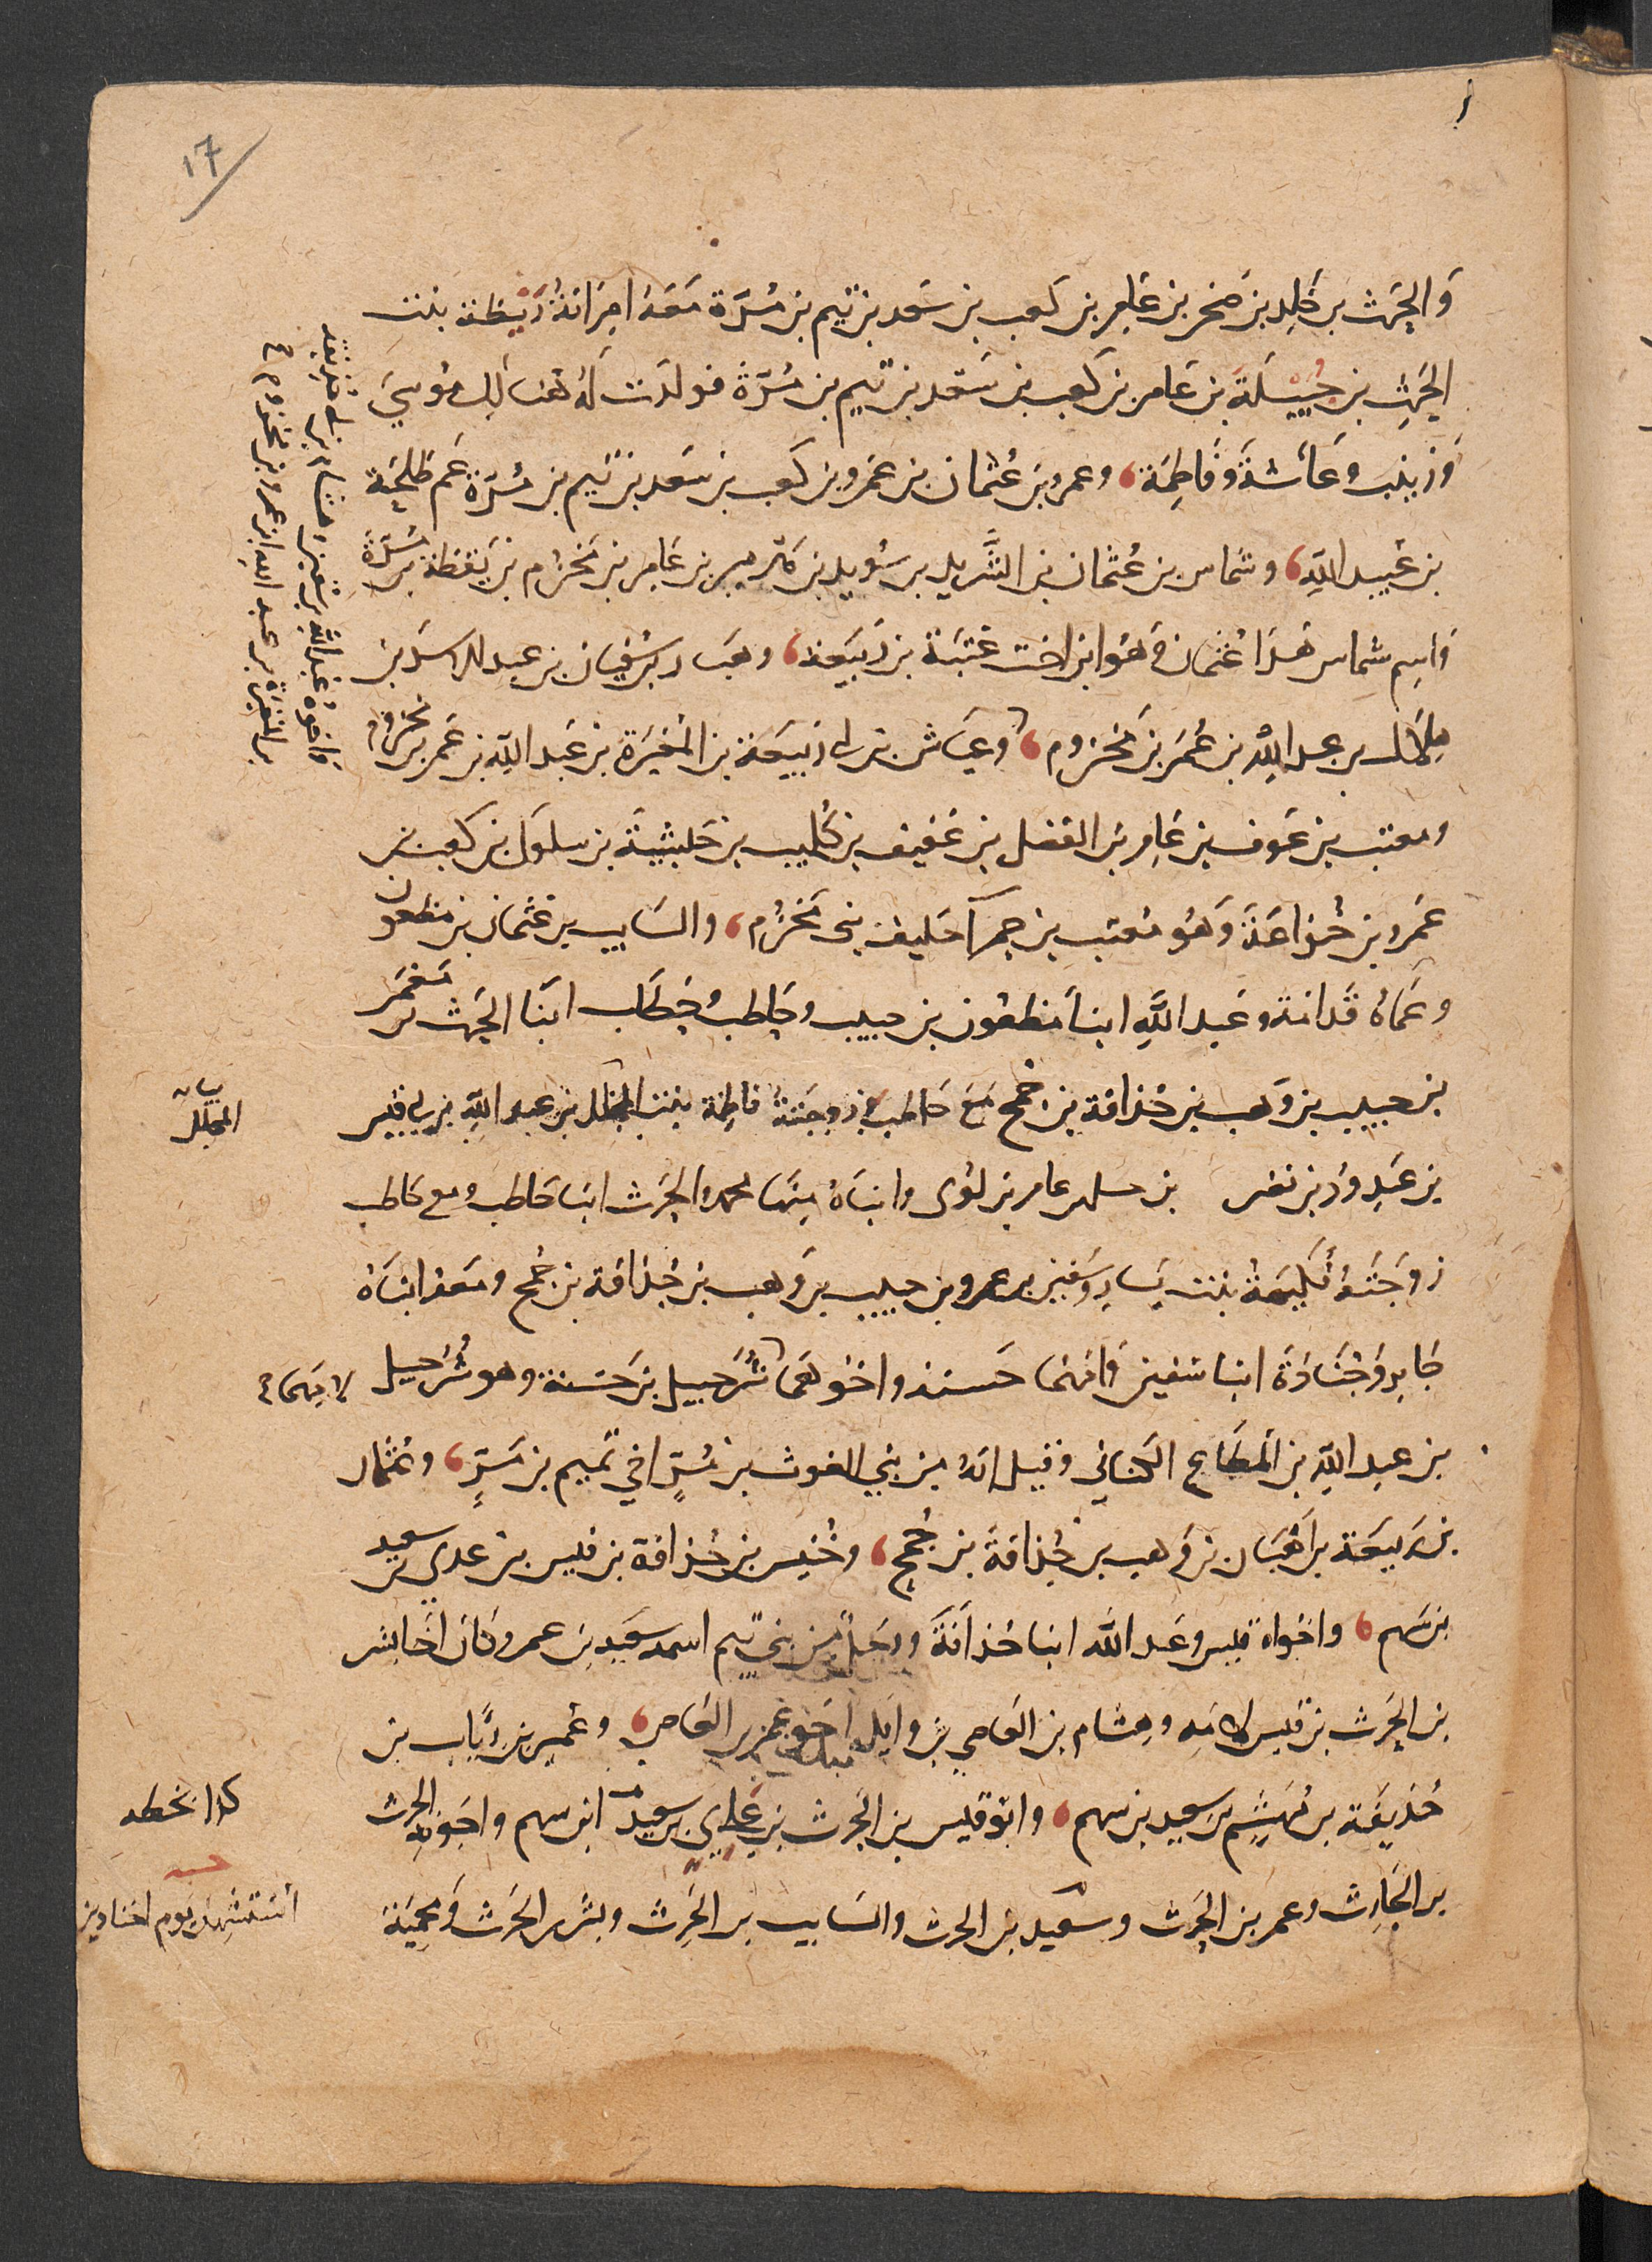 ١٧
وَالحٰرث بن خٰلِد بن صَخر بن عَامِر بن كَعب بن سَعد بن تَيم بن مُرَّة مَعَهُ امرَاتهُ رَيْطة بنت
الحٰرِث بن جُبَيْلَة بن عَامر بن كَعب بن سَعد بن تَيم بن مُرَّة فولدت لَهُ هُنالِك مُوسَى
وَزينب وعَائشة وفَاطِمَة، وعمرو بن عُثمان بن عَمرو بن كَعب بن سَعد بن تَيم بن مُرّة عَم طَلحَة
بن عُبيد اللهِ، وشماس بن عُثمان بن الشَّريد بن سُويد بن هَرمى بن عَامِر بن مَخزُوم بن يَقظة بن مُرَّة
وَاسم شماس هَذَا عُثمان وَهُوَ ابن اخت عُتبَة بن رَبيعَة، وهَبار بن سُفيان بن عبد الاسَد بن
هِلَال بن عبد اللهِ بن عُمَر بن مَخزوم، وعَيَاش بن ابى رَبيعَة بن المُغيرَة بن عَبد اللهِ بن عُمَر بن مخزوم
واخوه هشام بن ابى حُذيفة
بن المُغيرَة بن عبد الله بن عمر بن مخزوم
ومعتب بن عَوف بن عَامِر بن الفضل بن عَفيف بن كُليب بن حَبشية بن سلول بن كعب بن
عَمرو بن خُزاعَة وَهُو مُعتب بن حمرآ حَليف بنى مَخزُوم، والسَايب بن عُثمان بن مظعون
وعَمَاهُ قُدامَة وعَبد اللهِ ابنا مَظعُون بن حبيب وحَاطب وحَطاب ابنا الحٰرث بن مَعْمَر
بن حبيب بن وَهب بن حُذافة بن جُمح مَعَ حَاطب زوجَتهُ فاطِمَة بنت المجلل بن عبد اللهِ بن ابى قيس
بيان
المجلل
بن عَبدِ ودّ بن نصر بن حسل بن عامر بن لُوى وابنَاهُ مِنهَا محمد والحٰرث ابنا حَاطب ومع حَاطب
زوجَتهُ فُكيهَةُ بنت يَسار وسُفين بن معمر بن حبيب بن وَهب بن حُذافة بن جُمح ومَعَهُ ابنَاهُ
جَابر وجُنَادَة ابنا سُفين وَامهُما حَسنة واخُوهُمَا شُرَحبيل بن حَسنة وهو شُرحبيل لامهما
بن عبد اللهِ بن المطَاع الكنانى وقيل انهُ من بَنى الغوث بن مُرّ اخى تَميم بن مَرّ، وعُثمان
بن رَبيعَة بن اهبَان بن وَهب بن حُذافَة بن جُمح، وخُنيس بن حُذافة بن قيس بن عدى بن سعيد
بن سَهم، واخَواه قيس وعَبد الله ابنا حُذافَة ورَجل من بنى تَيم اسمه سَعيد بن عمرو كَان اخَا بشر
بن الحٰرث بن قيس لامّه وهِشام بن العَاصى بن وايل اخو عَمرو بن العَاص، وعُمير بن رِئاب بن
حُذيفَة بن مُهشِّم بن سعيد بن سهم، وابُو قيس بن الحٰرث بن عَدى بن سعيد ابن سهم واخوه الحرث
كذا بخطه
بن الحَارث ومعمر بن الحٰرث وسعيد بن الحرث والسَايب بن الحٰرِث وبشر بن الحٰرث ومَحْميَة
استشهد يَوم اجنادين